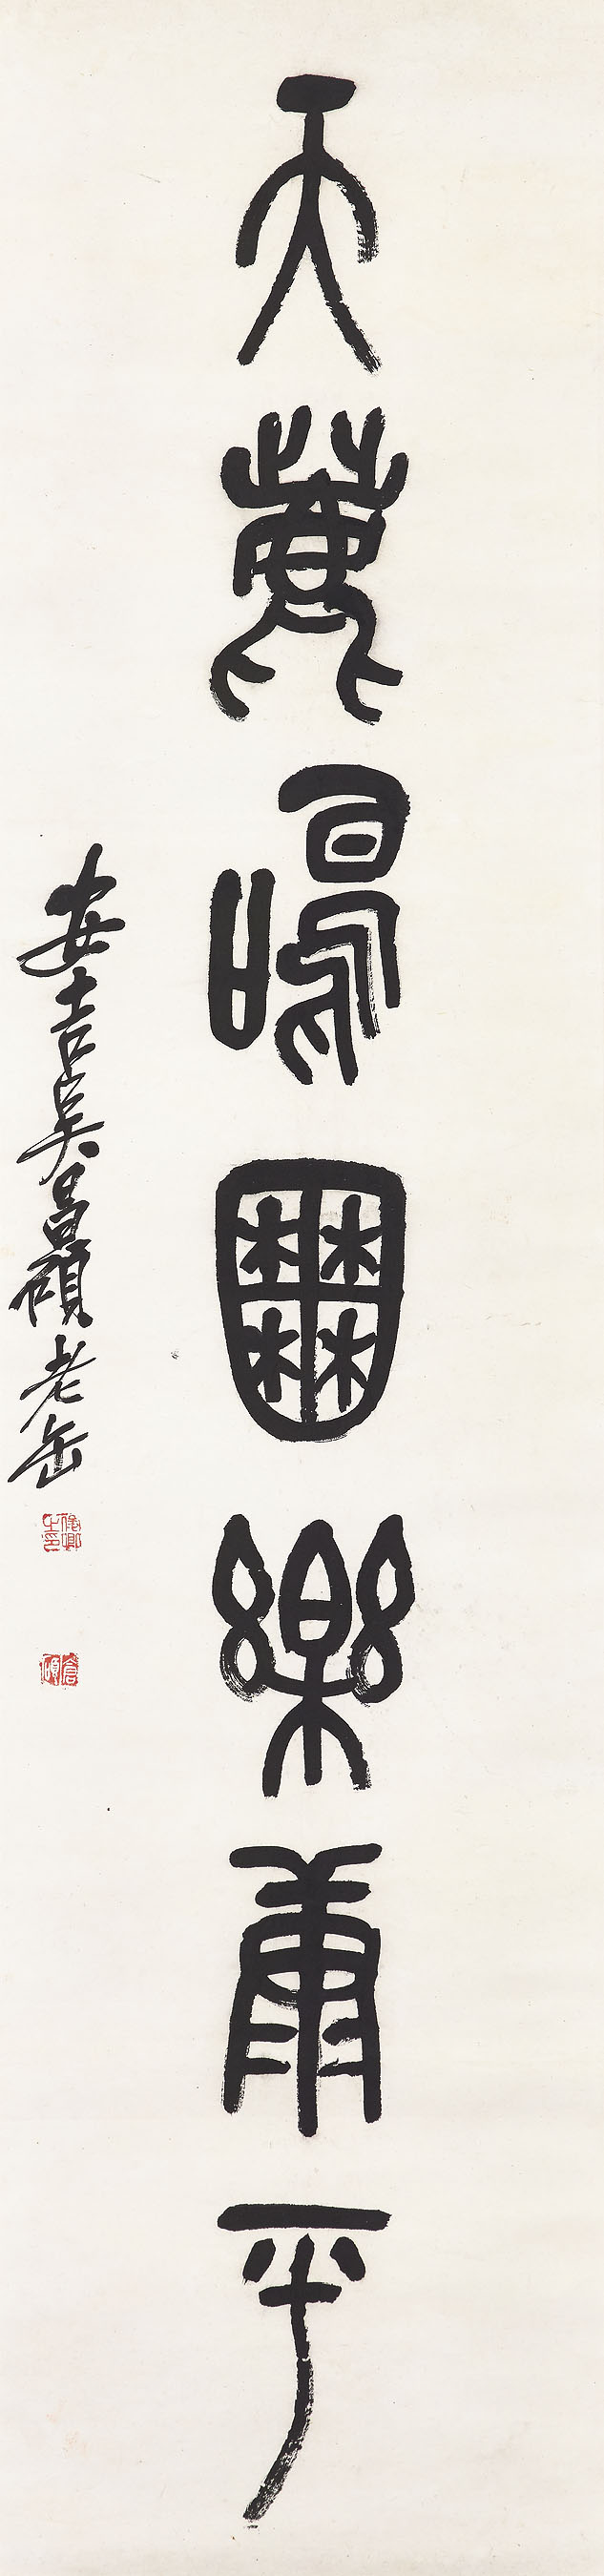 天鹿鳴囿樂康平
安吉吳昌碩老缶
俊卿之印
倉碩